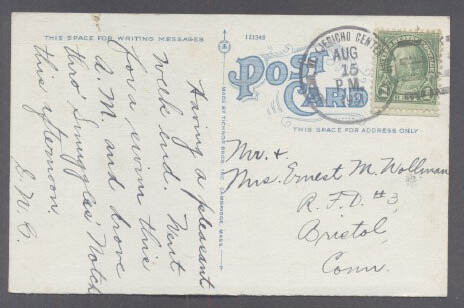 THIS SPACE FOR WRITING MESSAGES
Having a pleasant
week end. Went
for a swim this
A. M. and drove
thro Smugglers' Notch
this afternoon.
121345
MADE BY TICHNOR BROS. INC., CAMBRIDGE, MASS.
POST
CARD
THIS SPACE FOR ADDRESS ONLY
JERICHO CENTER
AUG
15
P M
Mr. +
Mrs. Ernest M. Wollman
R. F. D. #3
Bristol
Conn.